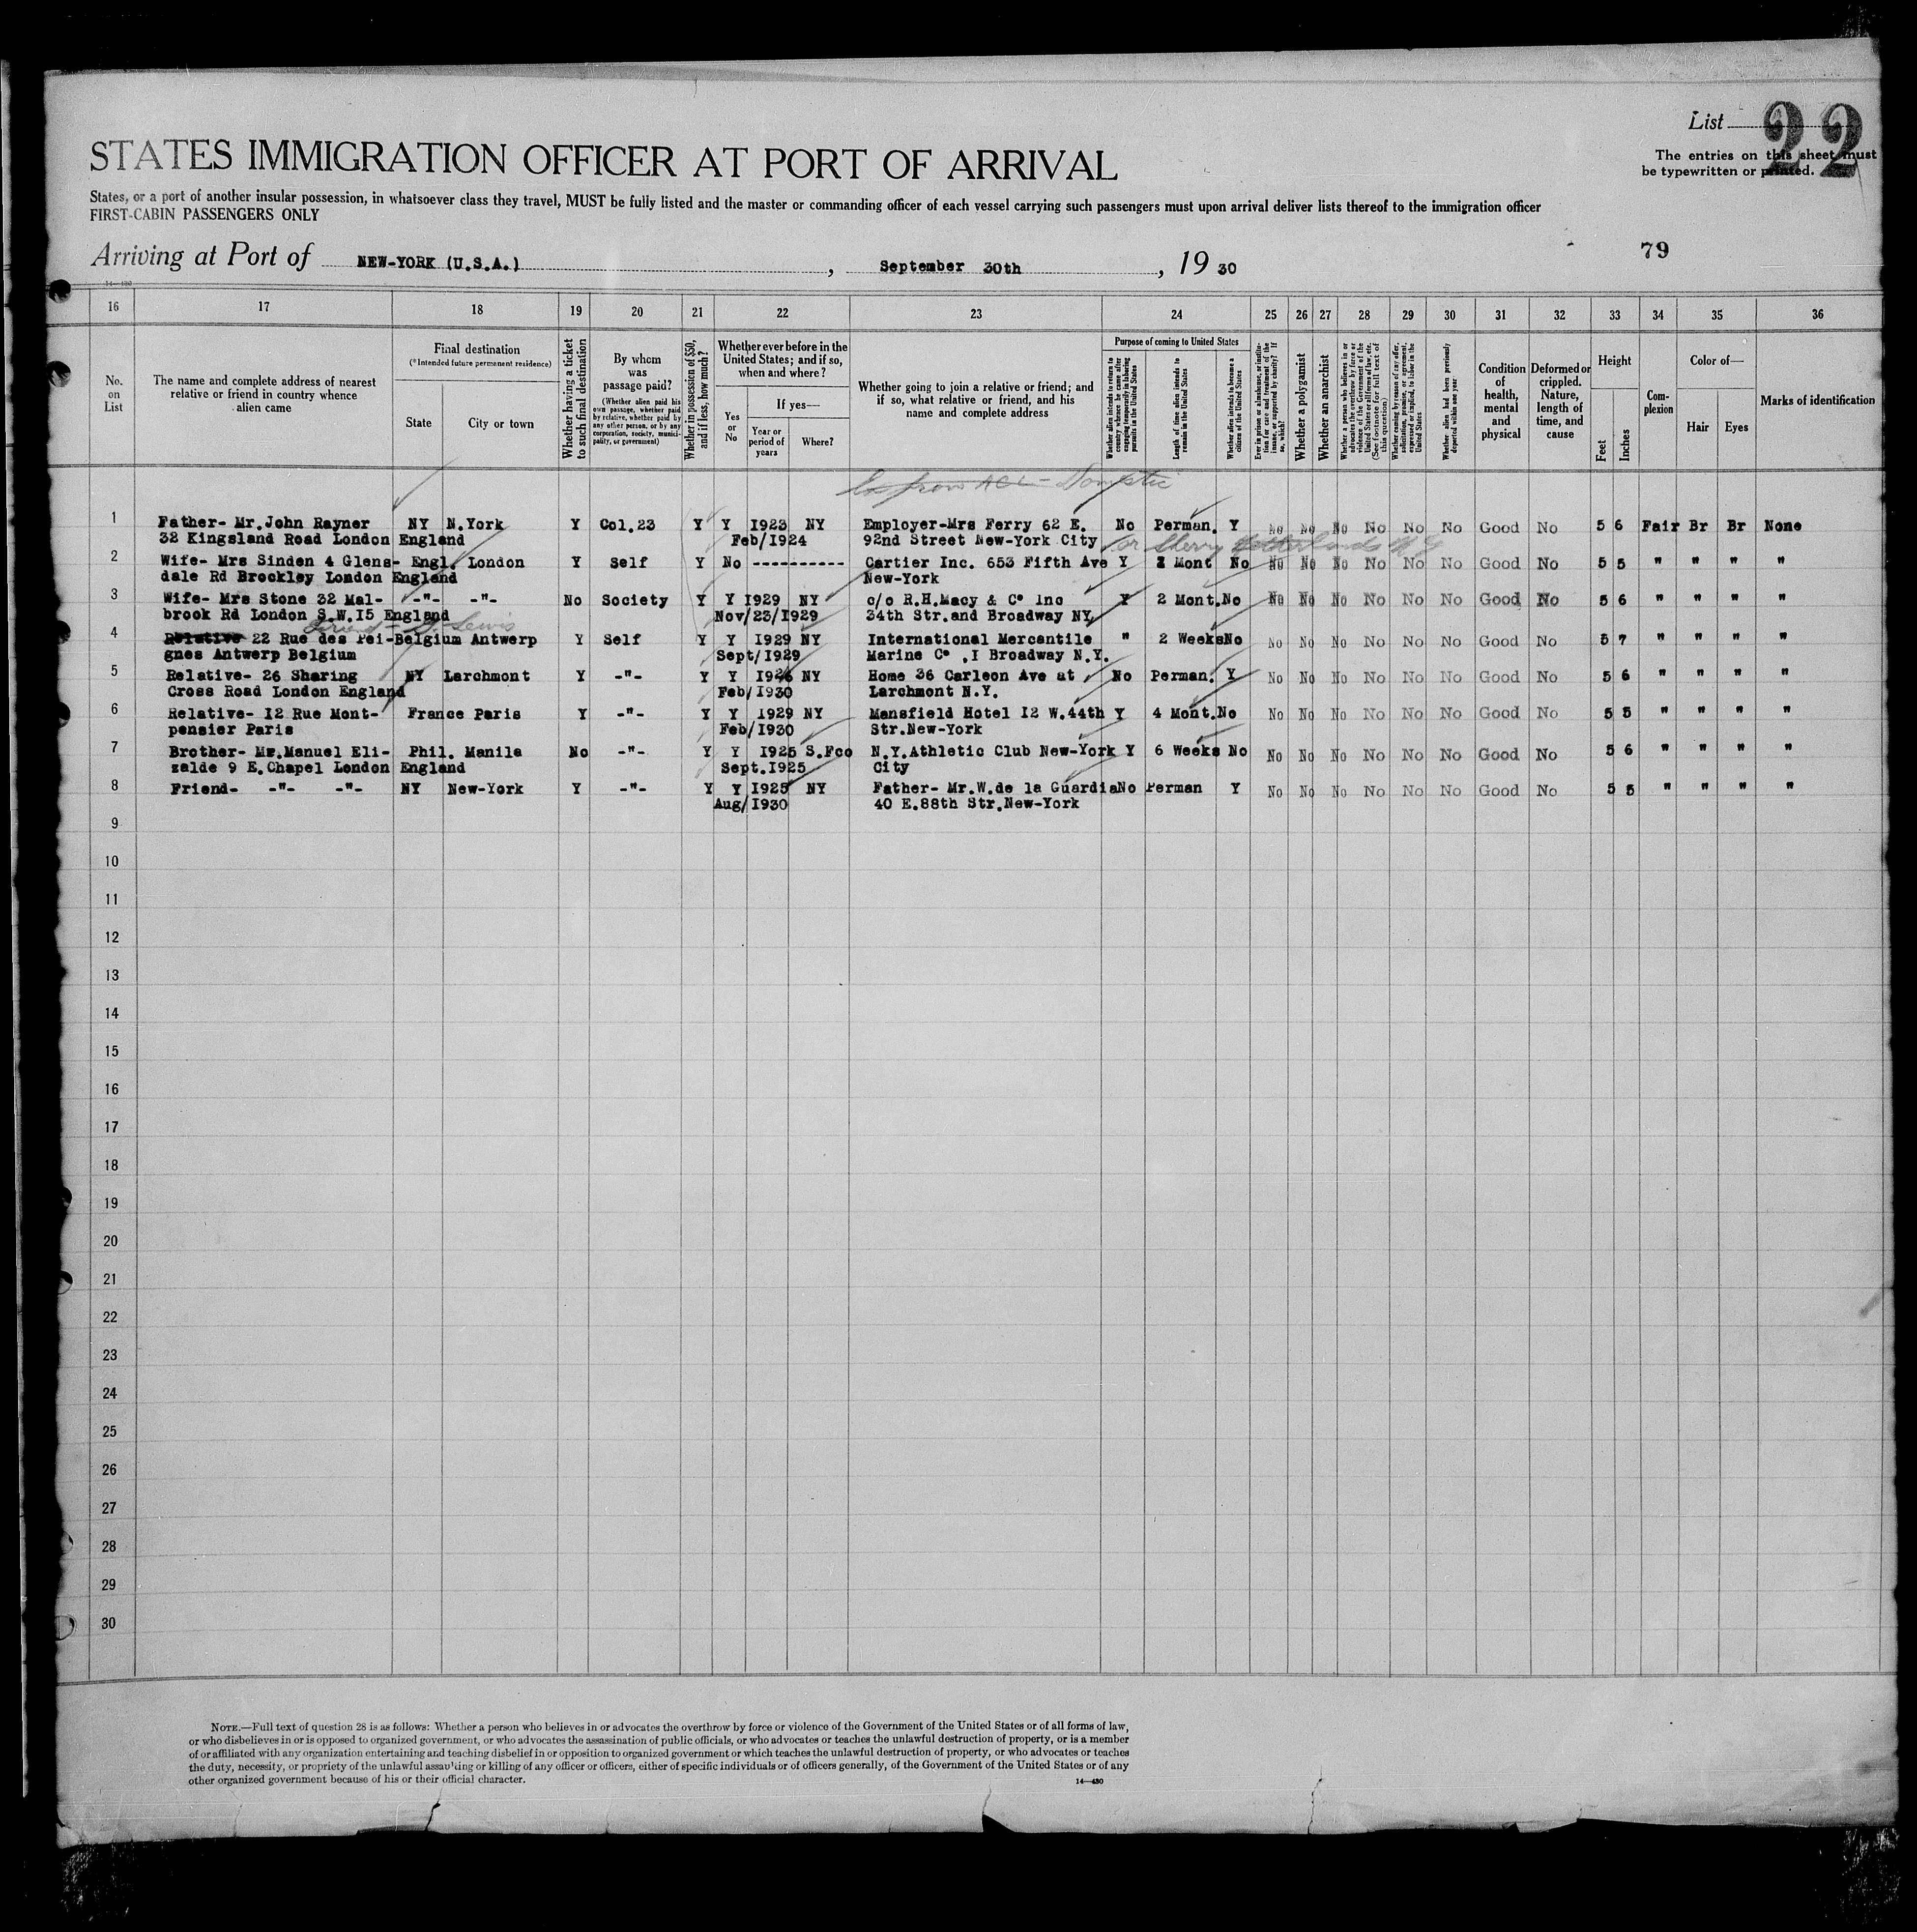 List 22
The entries on this sheet must
be typewritten or printed.
STATES IMMIGRATION OFFICER AT PORT OF ARRIVAL
States, or a port of another insular possession, in whatsoever class they travel, MUST be fully listed and the master or commanding officer of each vessel carrying such passengers must upon arrival deliver lists thereof to the immigration officer
FIRST-CABIN PASSENGERS ONLY
79
Arriving at Port of NEW-YORK (U.S.A.) , September 30th , 19 30
14—430
16 17 18 19 20 21 22 23 24 25 26 27 28 29 30 31 32 33 34 35 36
No. on List
The name and complete address of nearest relative or friend in country whence alien came
Final destination
(*Intended future permanent residence)
State
City or town
Whether having a ticket to such final destination
By whom was passage paid?
(Whether alien paid his own passage, whether paid by relative, whether paid by any other person, or by any corporation, society, municipality, or government)
Whether in possession of $50, and if less, how much?
Whether ever before in the United States; and if so, when and where?
Yes or No
If yes—
Year or period of years
Where?
Whether going to join a relative or friend; and if so, what relative or friend, and his name and complete address
Purpose of coming to United States
Whether alien intends to return to country whence he came after engaging temporarily in laboring pursuits in the United States
Length of time alien intends to remain in the United States
Whether alien intends to become a citizen of the United States
Ever in prison or almshouse, or institution for care and treatment of the insane, or supported by charity? If so, which?
Whether a polygamist
Whether an anarchist
Whether a person who believes in or advocates the overthrow by force or violence of the Government of the United States or all forms of law, etc. (See footnote for full text of this question)
Whether coming by reason of any offer, solicitation, promise, or agreement, expressed or implied, to labor in the United States
Whether alien had been previously deported within one year
Condition of health, mental and physical
Deformed or crippled. Nature, length of time, and cause
Height
Feet
Inches
Complexion
Color of—
Hair
Eyes
Marks of identification
Domestic
1 Father- Mr.John Rayner NY N.York Y Col.23 Y Y I923 NY Employer-Mrs Ferry 62 E. No Perman. Y No No No No No No Good No 5 6 Fair Br Br None
32 Kingsland Road London England Feb/I924 92nd Street New-York City
or Sherry Netherlands N Y
2 Wife- Mrs Sinden 4 Glens- Engl. London Y Self Y No ---------- Cartier Inc. 653 Fifth Ave Y 2 Mont No No No No No No No Good No 5 5 " " " "
dale Rd Brockley London England New-York
3 Wife- Mrs Stone 32 Mal- -"- -"- No Society Y Y I929 NY c/o R.H.Macy & C° Inc Y 2 Mont.No No No No No No No Good No 5 6 " " " "
brook Rd London S.W.I5 England Nov/23/I929 34th Str.and Broadway NY
Friend - D. Lewis
4 Relative 22 Rue des Pei- Belgium Antwerp Y Self Y Y I929 NY International Mercantile " 2 Weeks No No No No No No No Good No 5 7 " " " "
gnes Antwerp Belgium Sept/I929 Marine C° ,I Broadway N.Y.
5 Relative- 26 Sharing NY Larchmont Y -"- Y Y I926 NY Home 36 Carleon Ave at No Perman. Y No No No No No No Good No 5 6 " " " "
Cross Road London England Feb/I930 Larchmont N.Y.
6 Relative- I2 Rue Mont- France Paris Y -"- Y Y I929 NY Mansfield Hotel I2 W.44th Y 4 Mont.No No No No No No No Good No 5 5 " " " "
pensier Paris Feb/I930 Str.New-York
7 Brother- Mr.Manuel Eli- Phil. Manila No -"- Y Y I925 S.Fco N.Y.Athletic Club New-York Y 6 Weeks No No No No No No No Good No 5 6 " " " "
zalde 9 E.Chapel London England Sept.I925 City
8 Friend- -"- -"- NY New-York Y -"- Y Y I925 NY Father- Mr.W.de la Guardia No Perman Y No No No No No No Good No 5 5 " " " "
Aug/I930 40 E.88th Str.New-York
9
10
11
12
13
14
15
16
17
18
19
20
21
22
23
24
25
26
27
28
29
30
NOTE.—Full text of question 28 is as follows: Whether a person who believes in or advocates the overthrow by force or violence of the Government of the United States or of all forms of law,
or who disbelieves in or is opposed to organized government, or who advocates the assassination of public officials, or who advocates or teaches the unlawful destruction of property, or is a member
of or affiliated with any organization entertaining and teaching disbelief in or opposition to organized government or which teaches the unlawful destruction of property, or who advocates or teaches
the duty, necessity, or propriety of the unlawful assaulting or killing of any officer or officers, either of specific individuals or of officers generally, of the Government of the United States or of any
other organized government because of his or their official character.
14—430